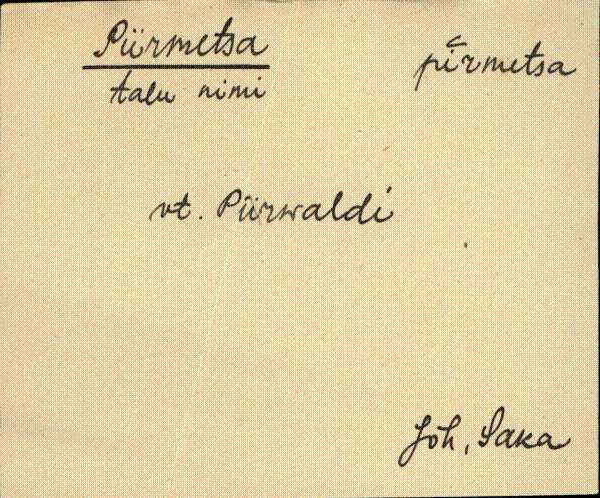 Piirmetsa
talu nimi
pīrmetsa
vt. Piirwaldi
Jõh, Saka